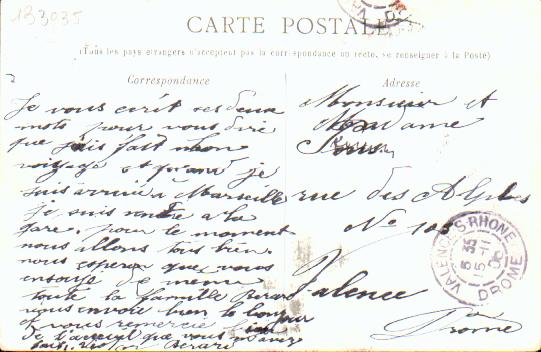 133035
CARTE POSTALE
(Tous les pays étrangers n'acceptent pas la correspondance au recto, se renseigner à la Poste)
Correspondance
Je vous écrit ses deux
mots pour vous dire
que jais fait mon
voiyage et quand je
suis arrivé à Marseille
je suis
a la
gare. pour le moment
nous allons tous bien.
nous esperon que vous
de meme
toute la famille
vous envoie bien le bonjour
et vous remercie
de l'acceuil que vous m'avez
fait.
Adresse
Monsieur et
Madame
rue des Alpes
No 105
Valence
Drome
VALENCE S RHONE
DROME